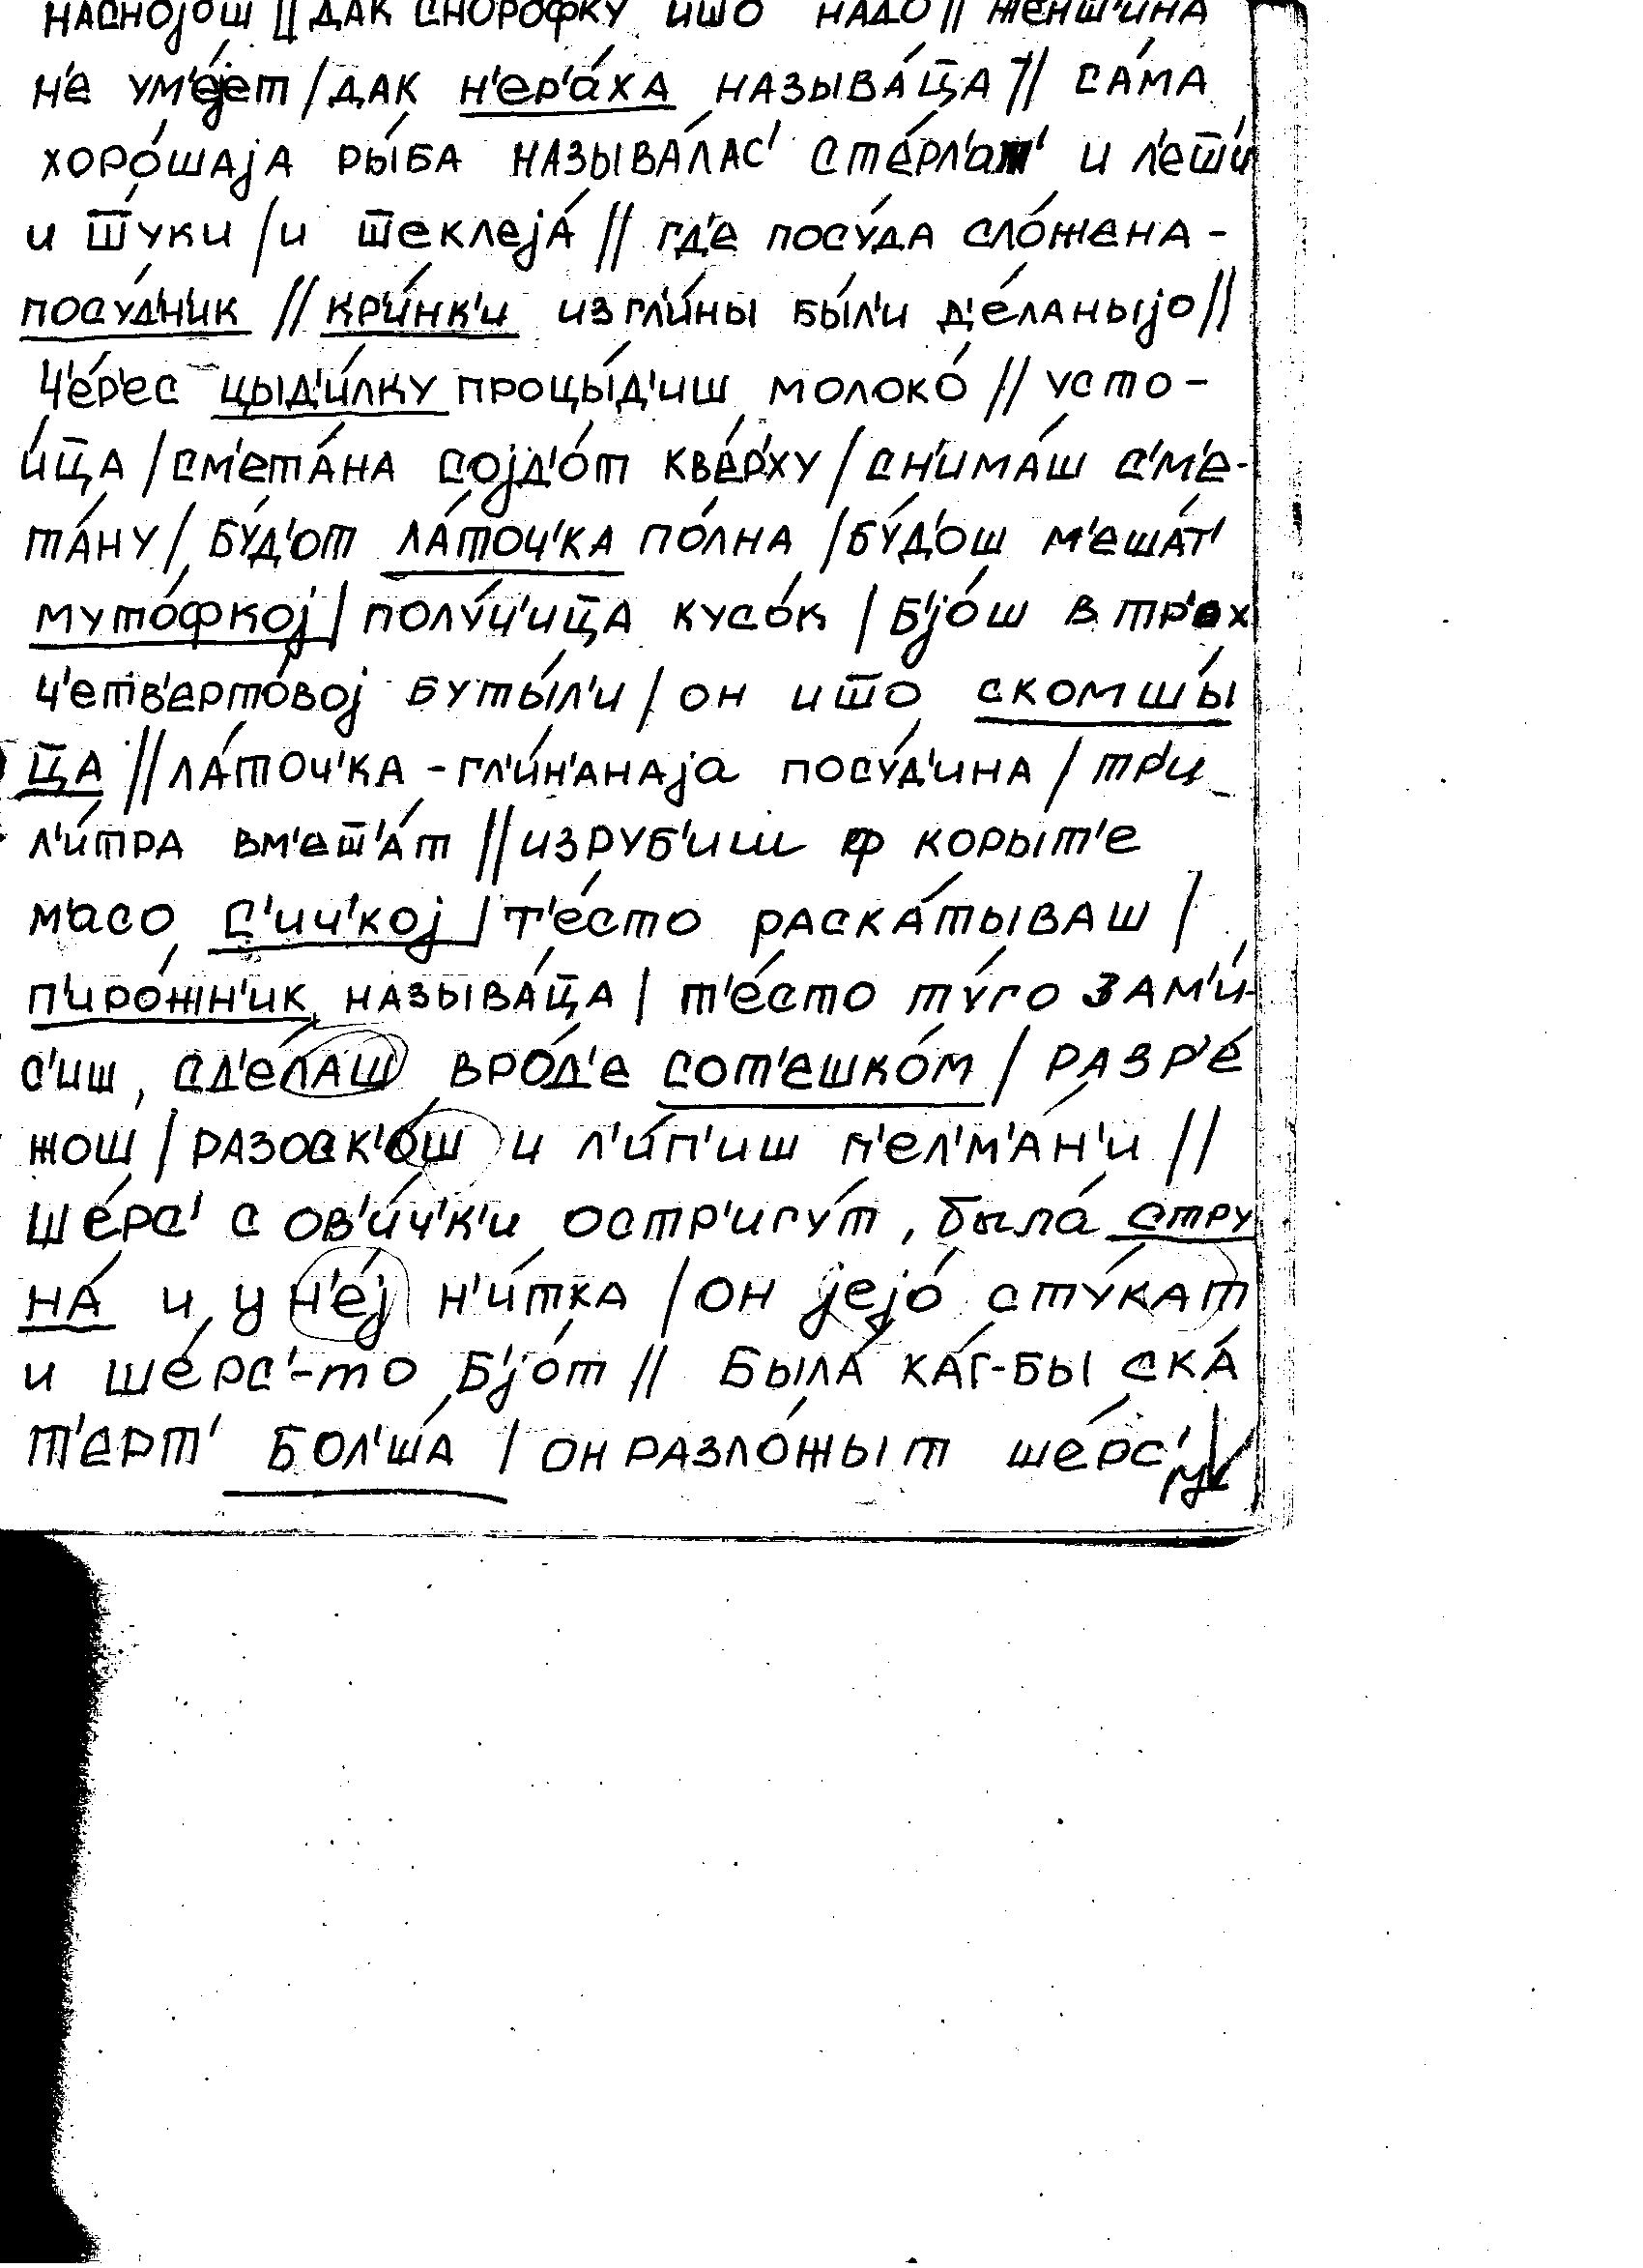 наснојош // дак снорофку ишо надо // женш'ина
н'е ум'е́јет / дак н'ер'а́ха называ́ц̄а // са́ма
хоро́шаја ры́ба называ́лас' сте́рл'ат' и л'еш̄и́
и ш̄у́ки / и ш̄еклеја́ // гд'е посу́да сло́жена -
посу́д'н'ик // кр'и́нк'и из гл'и́ны бы́л'и д'е́ланыјо //
ч'е́р'ес цыд'и́лку процы́д'иш молоко́ // усто-
и́ц̄а / см'ета́на сојд'о́т кве́рху / сн'има́ш с'м'е-
та́ну / бу́д'от ла́точ'ка по́лна / бу́д'ош м'еша́т'
муто́фкој / полу́ч'иц̄а кусо́к / б'јо́ш в тр'ох
ч'етв'ерто́вој буты́л'и / он иш̄о скомшы́
ц̄а // ла́точ'ка - гл'и́н'анаја посу́д'ина / тр'и
л'и́тра вм'еш̄'а́т // изруб'иш ф корыт'е
м'асо с'ич'кој / т'е́сто раска́тываш /
п'иро́жн'ик называ́ц̄а / т'е́сто ту́го зам'и́-
с'иш, сд'е́лаш вро́д'е сот'ешко́м / разр'е́
жош / разоск'о́ш и л'и́п'иш п'ел'м'а́н'и //
ше́рс' с ов'и́ч'к'и остр'игу́т, была́ стру
на́ и у н'е́ј н'и́тка / он јејо́ сту́кат
и ше́рс'-то б'јо́т // была́ ка́г-бы ска́
т'ерт' бол'ша́ / он разло́жыт ше́рс'